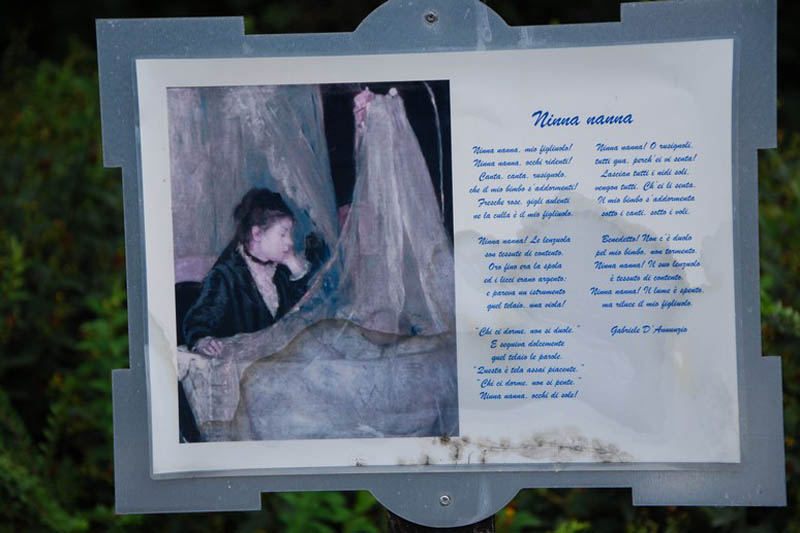 Ninna nanna
Ninna nanna, mio figliuolo!
Ninna nanna, occhi ridenti!
Canta, canta, rusignolo,
che il mio bimbo s'addormenti!
Fresche rose, gigli aulenti
ne la culla è il mio figliuolo.
Ninna nanna! Le lenzuola
son tessute di contento.
Oro fino era la spola
ed i licci erano argento;
e pareva un istrumento
quel telaio, una viola!
"Chi ci dorme, non si duole."
E seguiva dolcemente
quel telaio le parole.
"Questa è tela assai piacente."
"Chi ci dorme, non si pente."
Ninna nanna, occhi di sole!
Ninna nanna! O rusignoli,
tutti qua, perch'ei vi senta!
Lascian tutti i nidi soli,
vengon tutti. Ch'ei li senta.
Il mio bimbo s'addormenta
sotto i canti, sotto i voli.
Benedetto! Non c'è duolo
pel mio bimbo, non tormento.
Ninna nanna! Il suo lenzuolo
è tessuto di contento.
Ninna nanna! Il lume è spento,
ma riluce il mio figliuolo.
Gabriele D'Annunzio